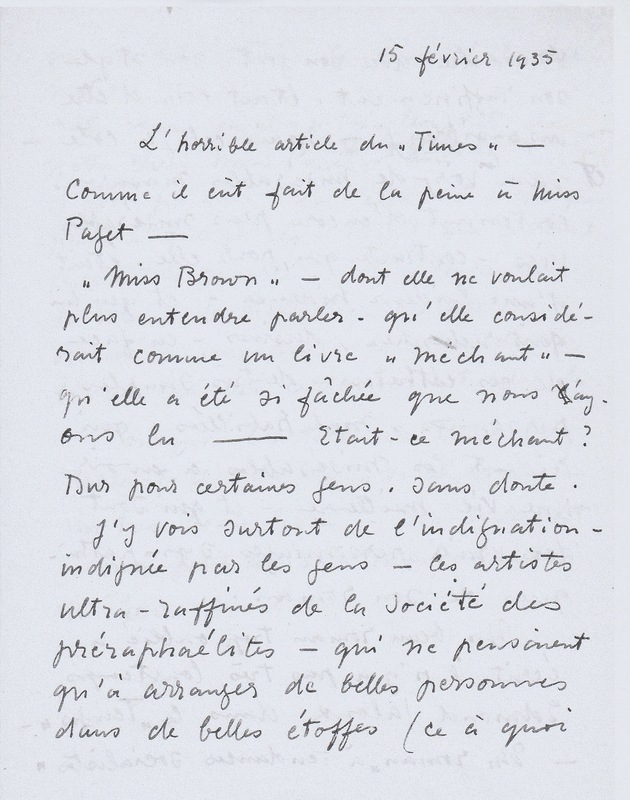 15 février 1935
L'horrible article du „Times" —
Comme il eût fait de la peine à Miss
Paget —
„Miss Brown" — dont elle ne voulait
plus entendre parler - qu'elle considé-
rait comme un livre „méchant" —
qu'elle a été si fâchée que nous l'ay-
ons lu — Etait-ce méchant?
Dur pour certaines gens. Sans doute.
J'y vois surtout de l'indignation -
indignée par les gens — les artistes
ultra-raffinés de la Société des
préraphaélites — qui ne pensaient
qu'à arranger de belles personnes
dans de belles étoffes (ce à quoi